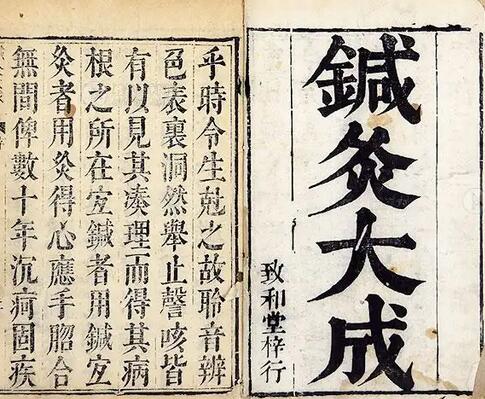 鍼灸大成
致和堂梓行
乎時令生尅之故聆音辨
色表裏洞然舉止謦咳皆
有以見其湊理而得其病
根之所在宐鍼者用鍼宐
灸者用灸得心應手脗合
無間俾數十年沉疴固疾